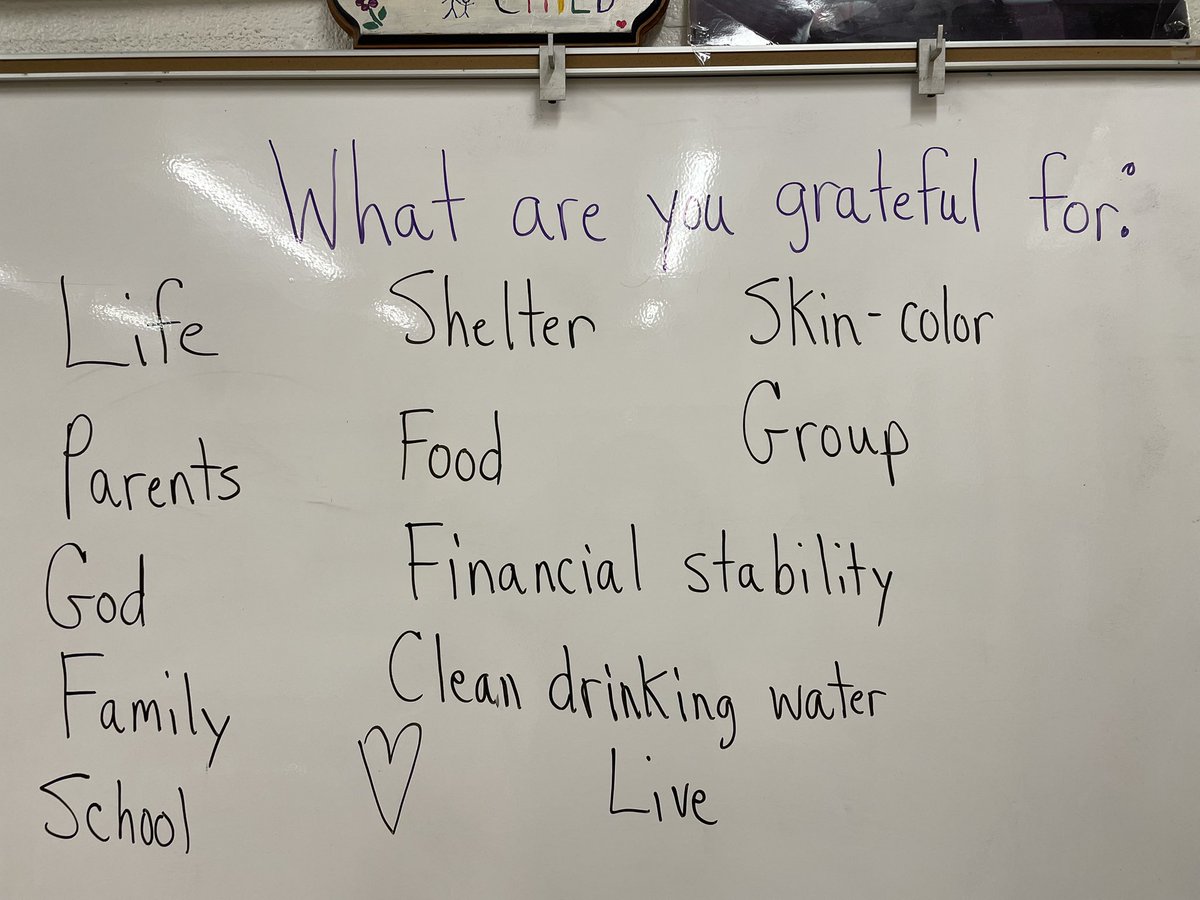 CHILD
What are you grateful for:
Life
Parents
God
Family
School
Shelter
Food
Financial stability
Clean drinking water
Live
Skin-color
Group